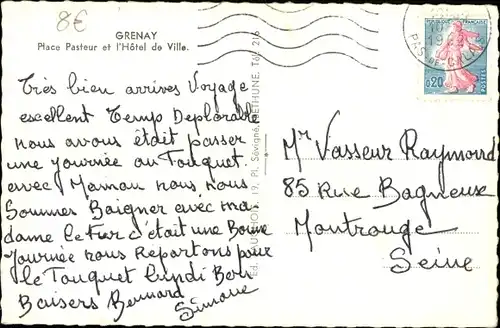 8€
GRENAY
Place Pasteur et l'Hôtel de Ville.
RÉPUBLIQUE FRANÇAISE
0,20
POSTES
PAS-DE-CALAIS
Très bien arrives Voyage
excellent Temp Deplorable
nous avous était passer
une journée au Touquet.
avec Maman nous, nous
Sommes Baigner avec ma
dame le Fur c'était une Bonne
journée nous Repartons pour
le Touquet Lundi Bon
Baisers Bernard
Simone
Mr Vasseur Raymond
85 Rue Bagneux
Montrouge
Seine
19, Pl. Sévigné, BÉTHUNE. Tél. 216